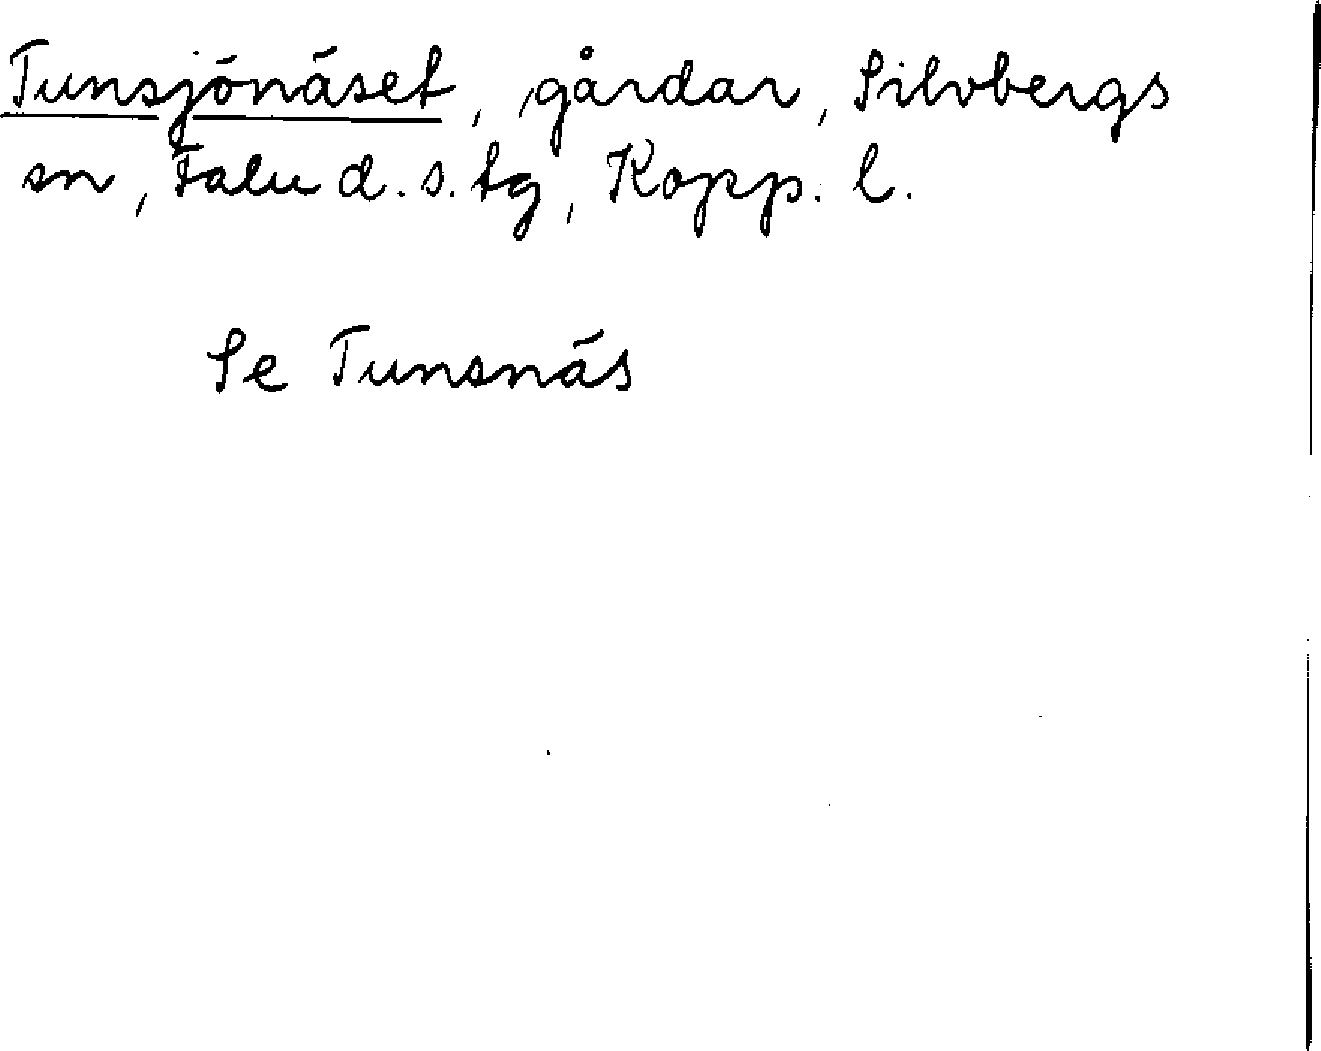 Tunsjönäset, gårdar, Silvbergs
sn, Falu d. s. tg, Kopp. l.
Se Tunsnäs